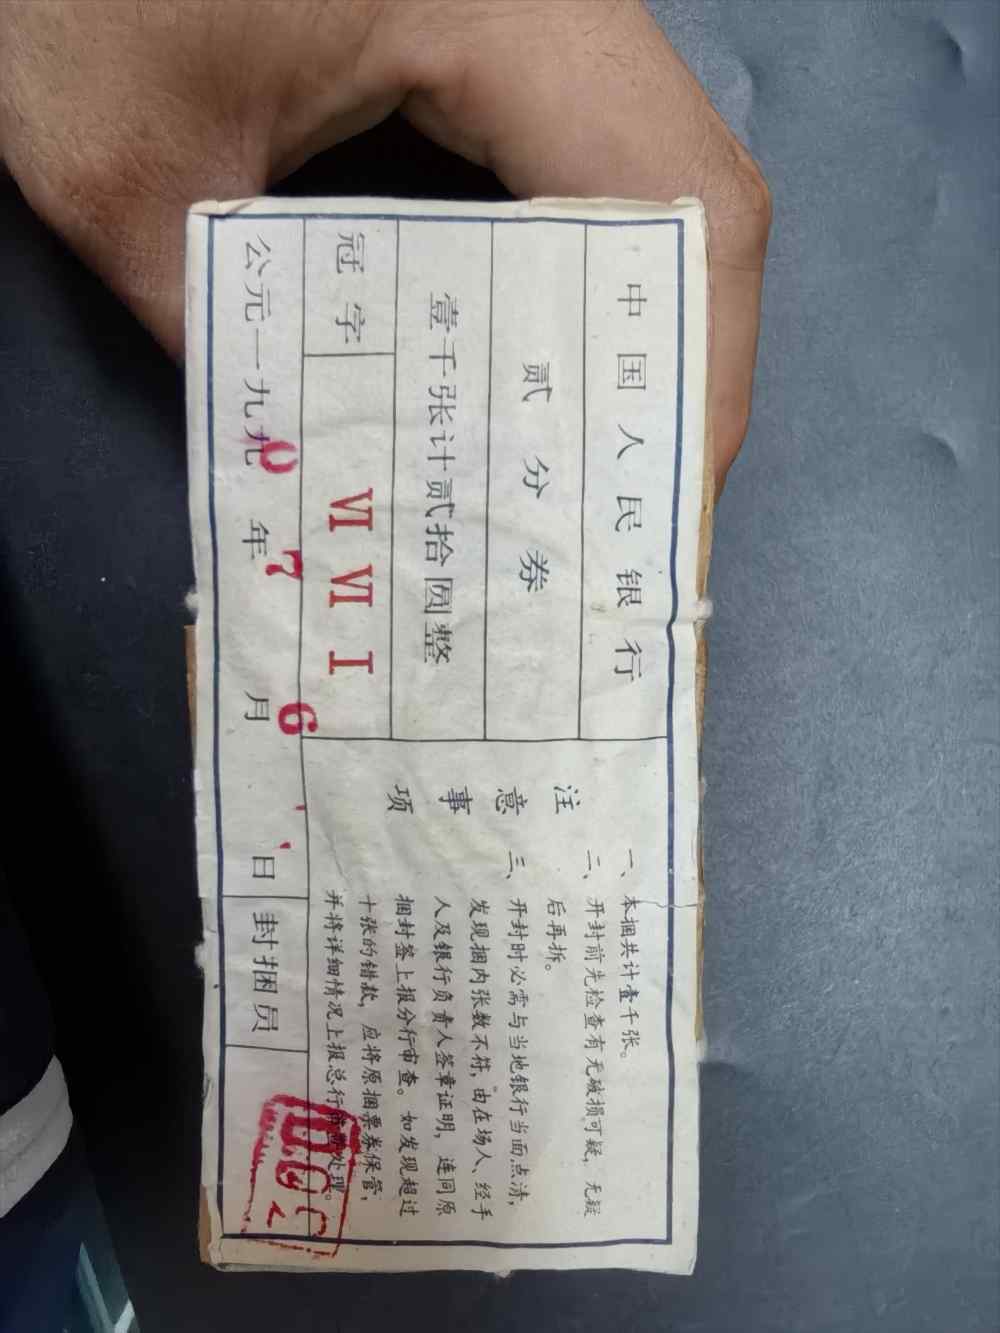 中国人民银行
贰分券
壹千张计贰拾圆整
冠字 VI VI I
公元一九九0年7月6日
封捆员
注意事项
一、本捆共计壹千张。
二、开封前先检查有无破损可疑,无疑
后再拆。
三、开封时必需与当地银行当面点清,
发现捆内张数不符,由在场人、经手
人及银行负责人签章证明,连同原
捆封签上报分行审查。如发现超过
十张的错款,应将原捆票券保管,
并将详细情况上报总行审查处理。